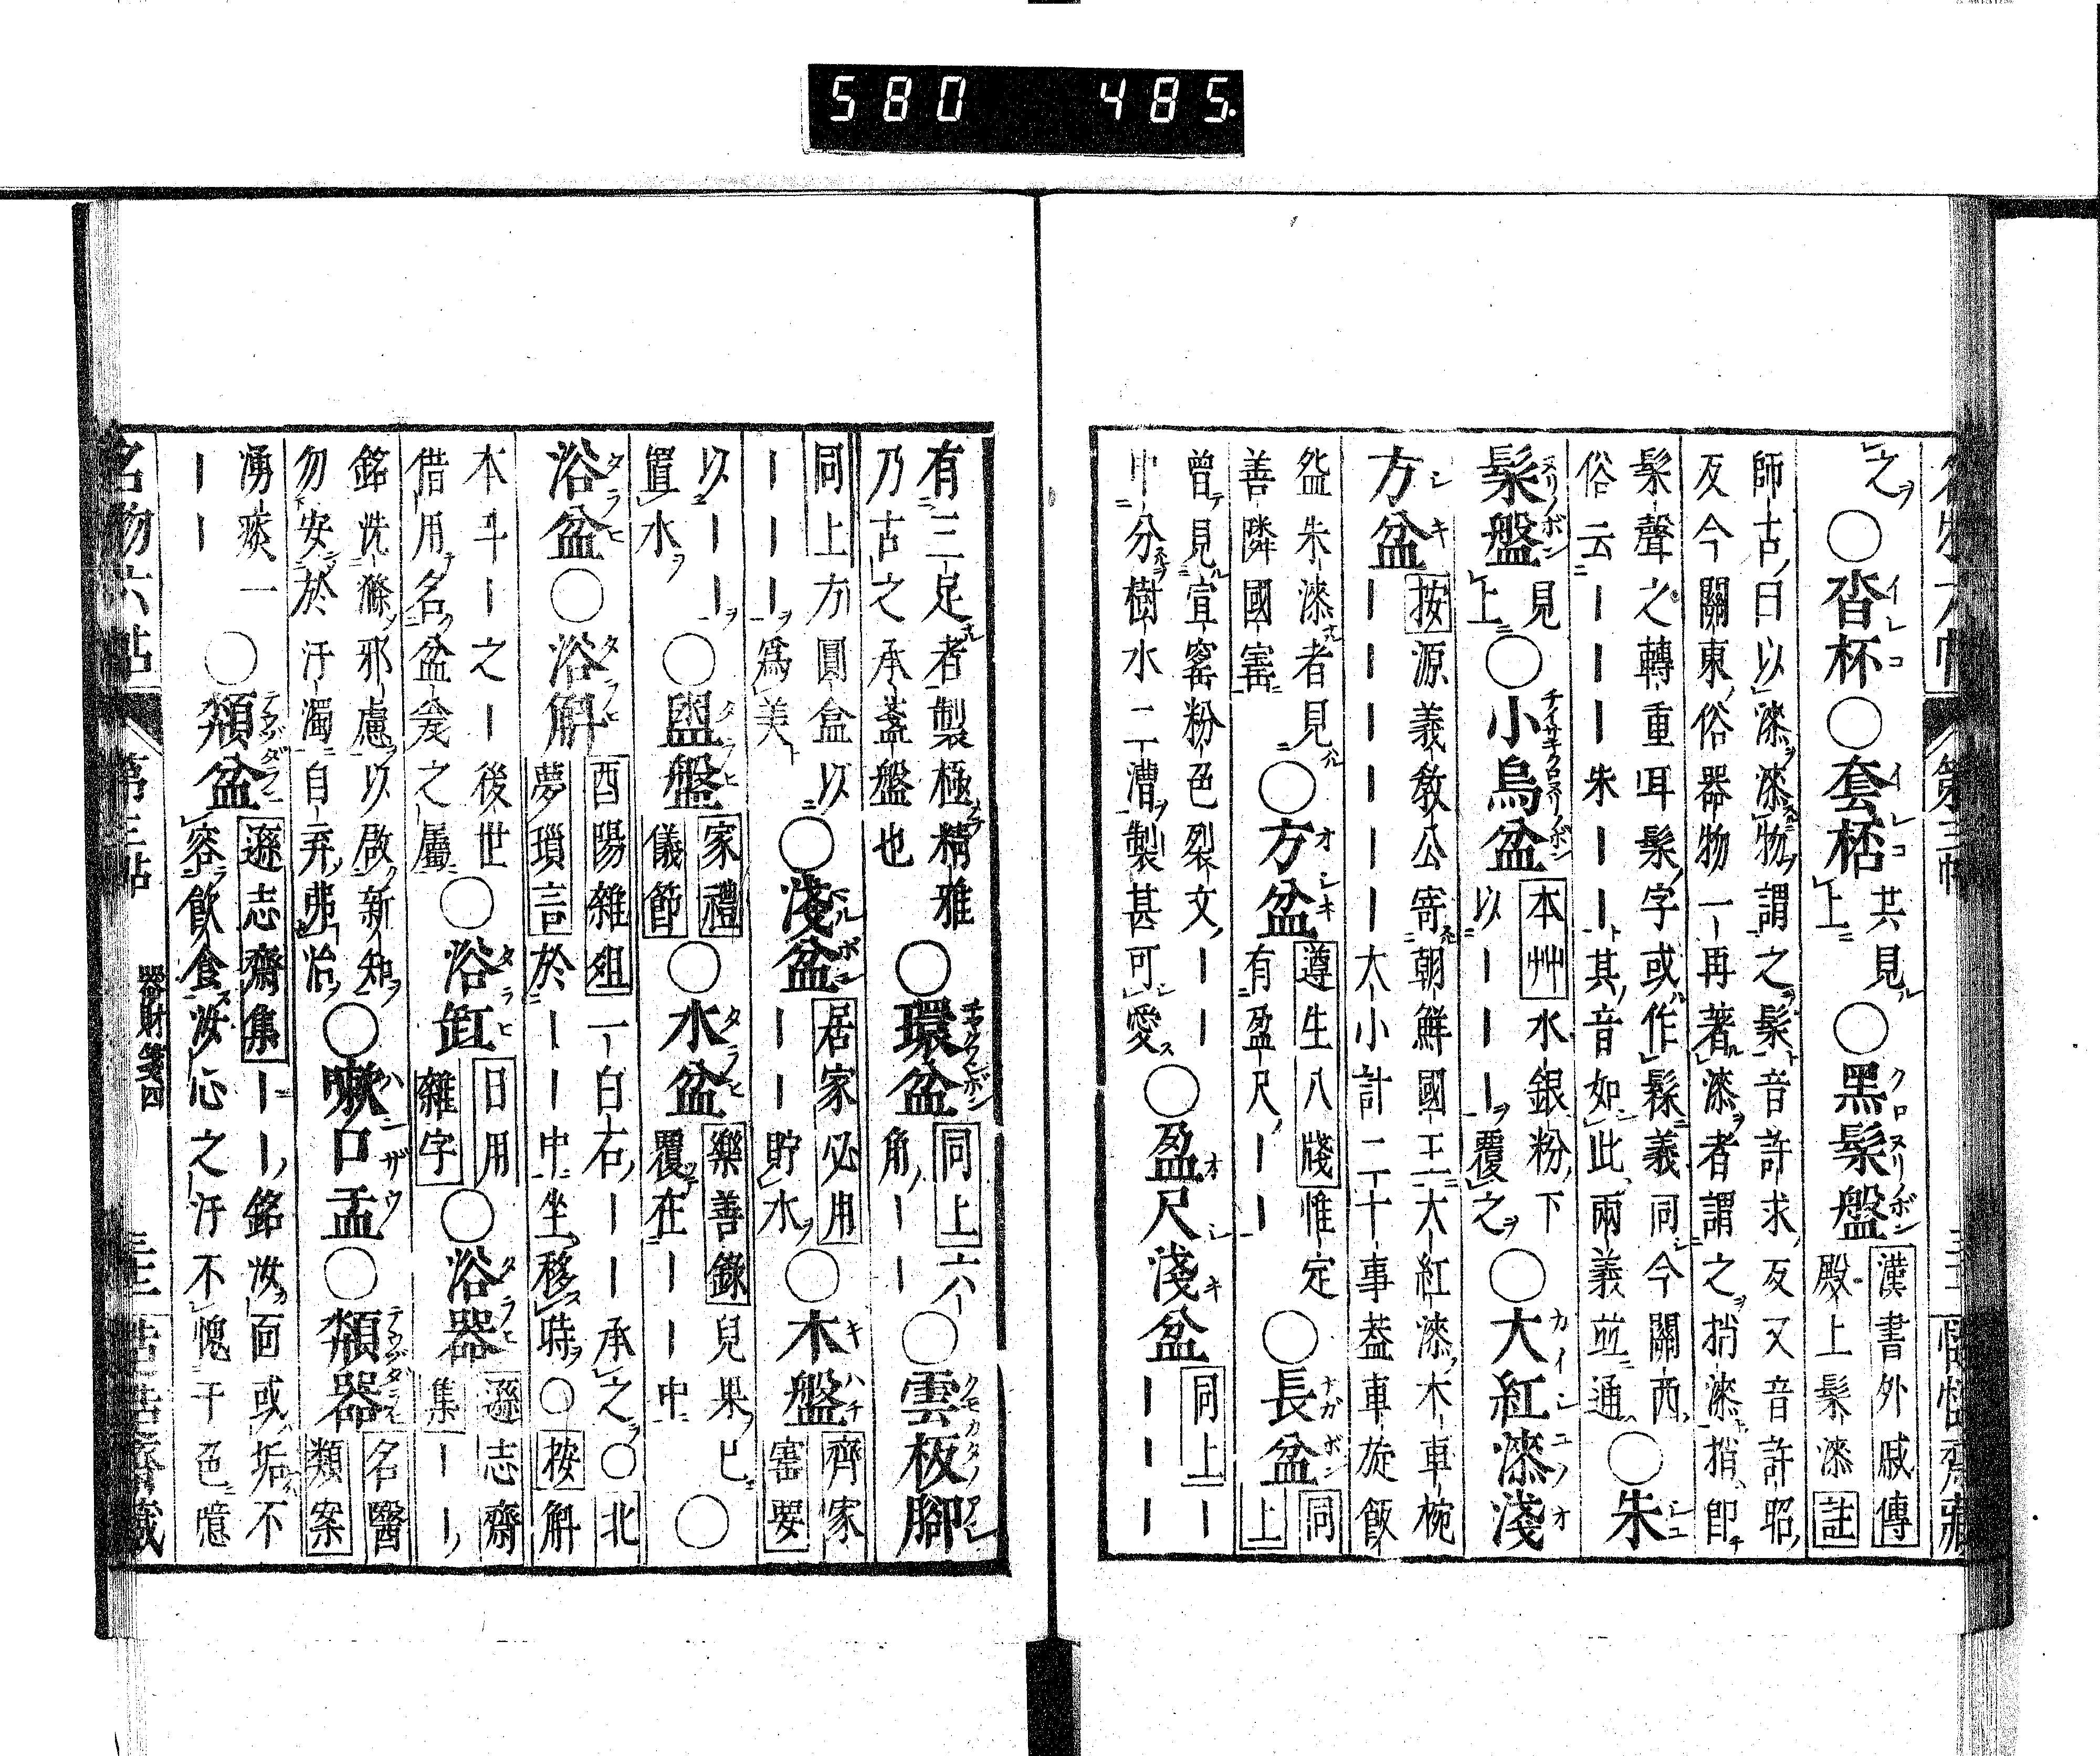 名物六帖 第三帖
之ヲ○沓杯○套桮共見上○黑髹盤漢書外戚傳
殿上髹漆註
師古曰以漆漆物謂之髹音許求反又音許昭
反今關東俗器物一再著漆者謂之捎漆捎即
髹聲之轉重耳髹字或作䰍義同今關西
俗云||||朱||其音如此兩義並通○朱
髹盤見上○小烏盆本艸水銀粉下
以|||覆之○大紅漆淺
方盆按源義教公寄朝鮮國王大紅漆木車椀
||||||大小計二十事葢車旋飯
盆朱漆者見
善隣國寶○方盆遵生八牋惟定
有盈尺||○長盆同上
曾見宣窰粉色裂文||
中分樹水二漕製甚可愛○盈尺淺盆同上|
|||
有三足者製極精雅
乃古之承盞盤也○環盆同上六
角||○雲板腳
同上方圓盒以
||||爲美○淺盆居家必用
|||貯水○木盤齊家寶要
以|||
置水○盥盤家禮儀節○水盆樂善錄兒果已
覆在||中○
浴盆○浴斛酉陽雜俎一白石|||承之○北
夢瑣言於|||中坐移時○按斛
本斗|之|後世
借用名盆之屬○浴缸日用雜字○浴器遜志齋集||
銘洗滌邪慮以啟新知
勿安於汙濁自弃弗治○嗽口盂○頮器名醫類案
湧痰一
||○頮盆遜志齋集||銘汝面或垢不
容飲食汝心之汙不愧于色噫
名物六帖 第三帖 器財箋四